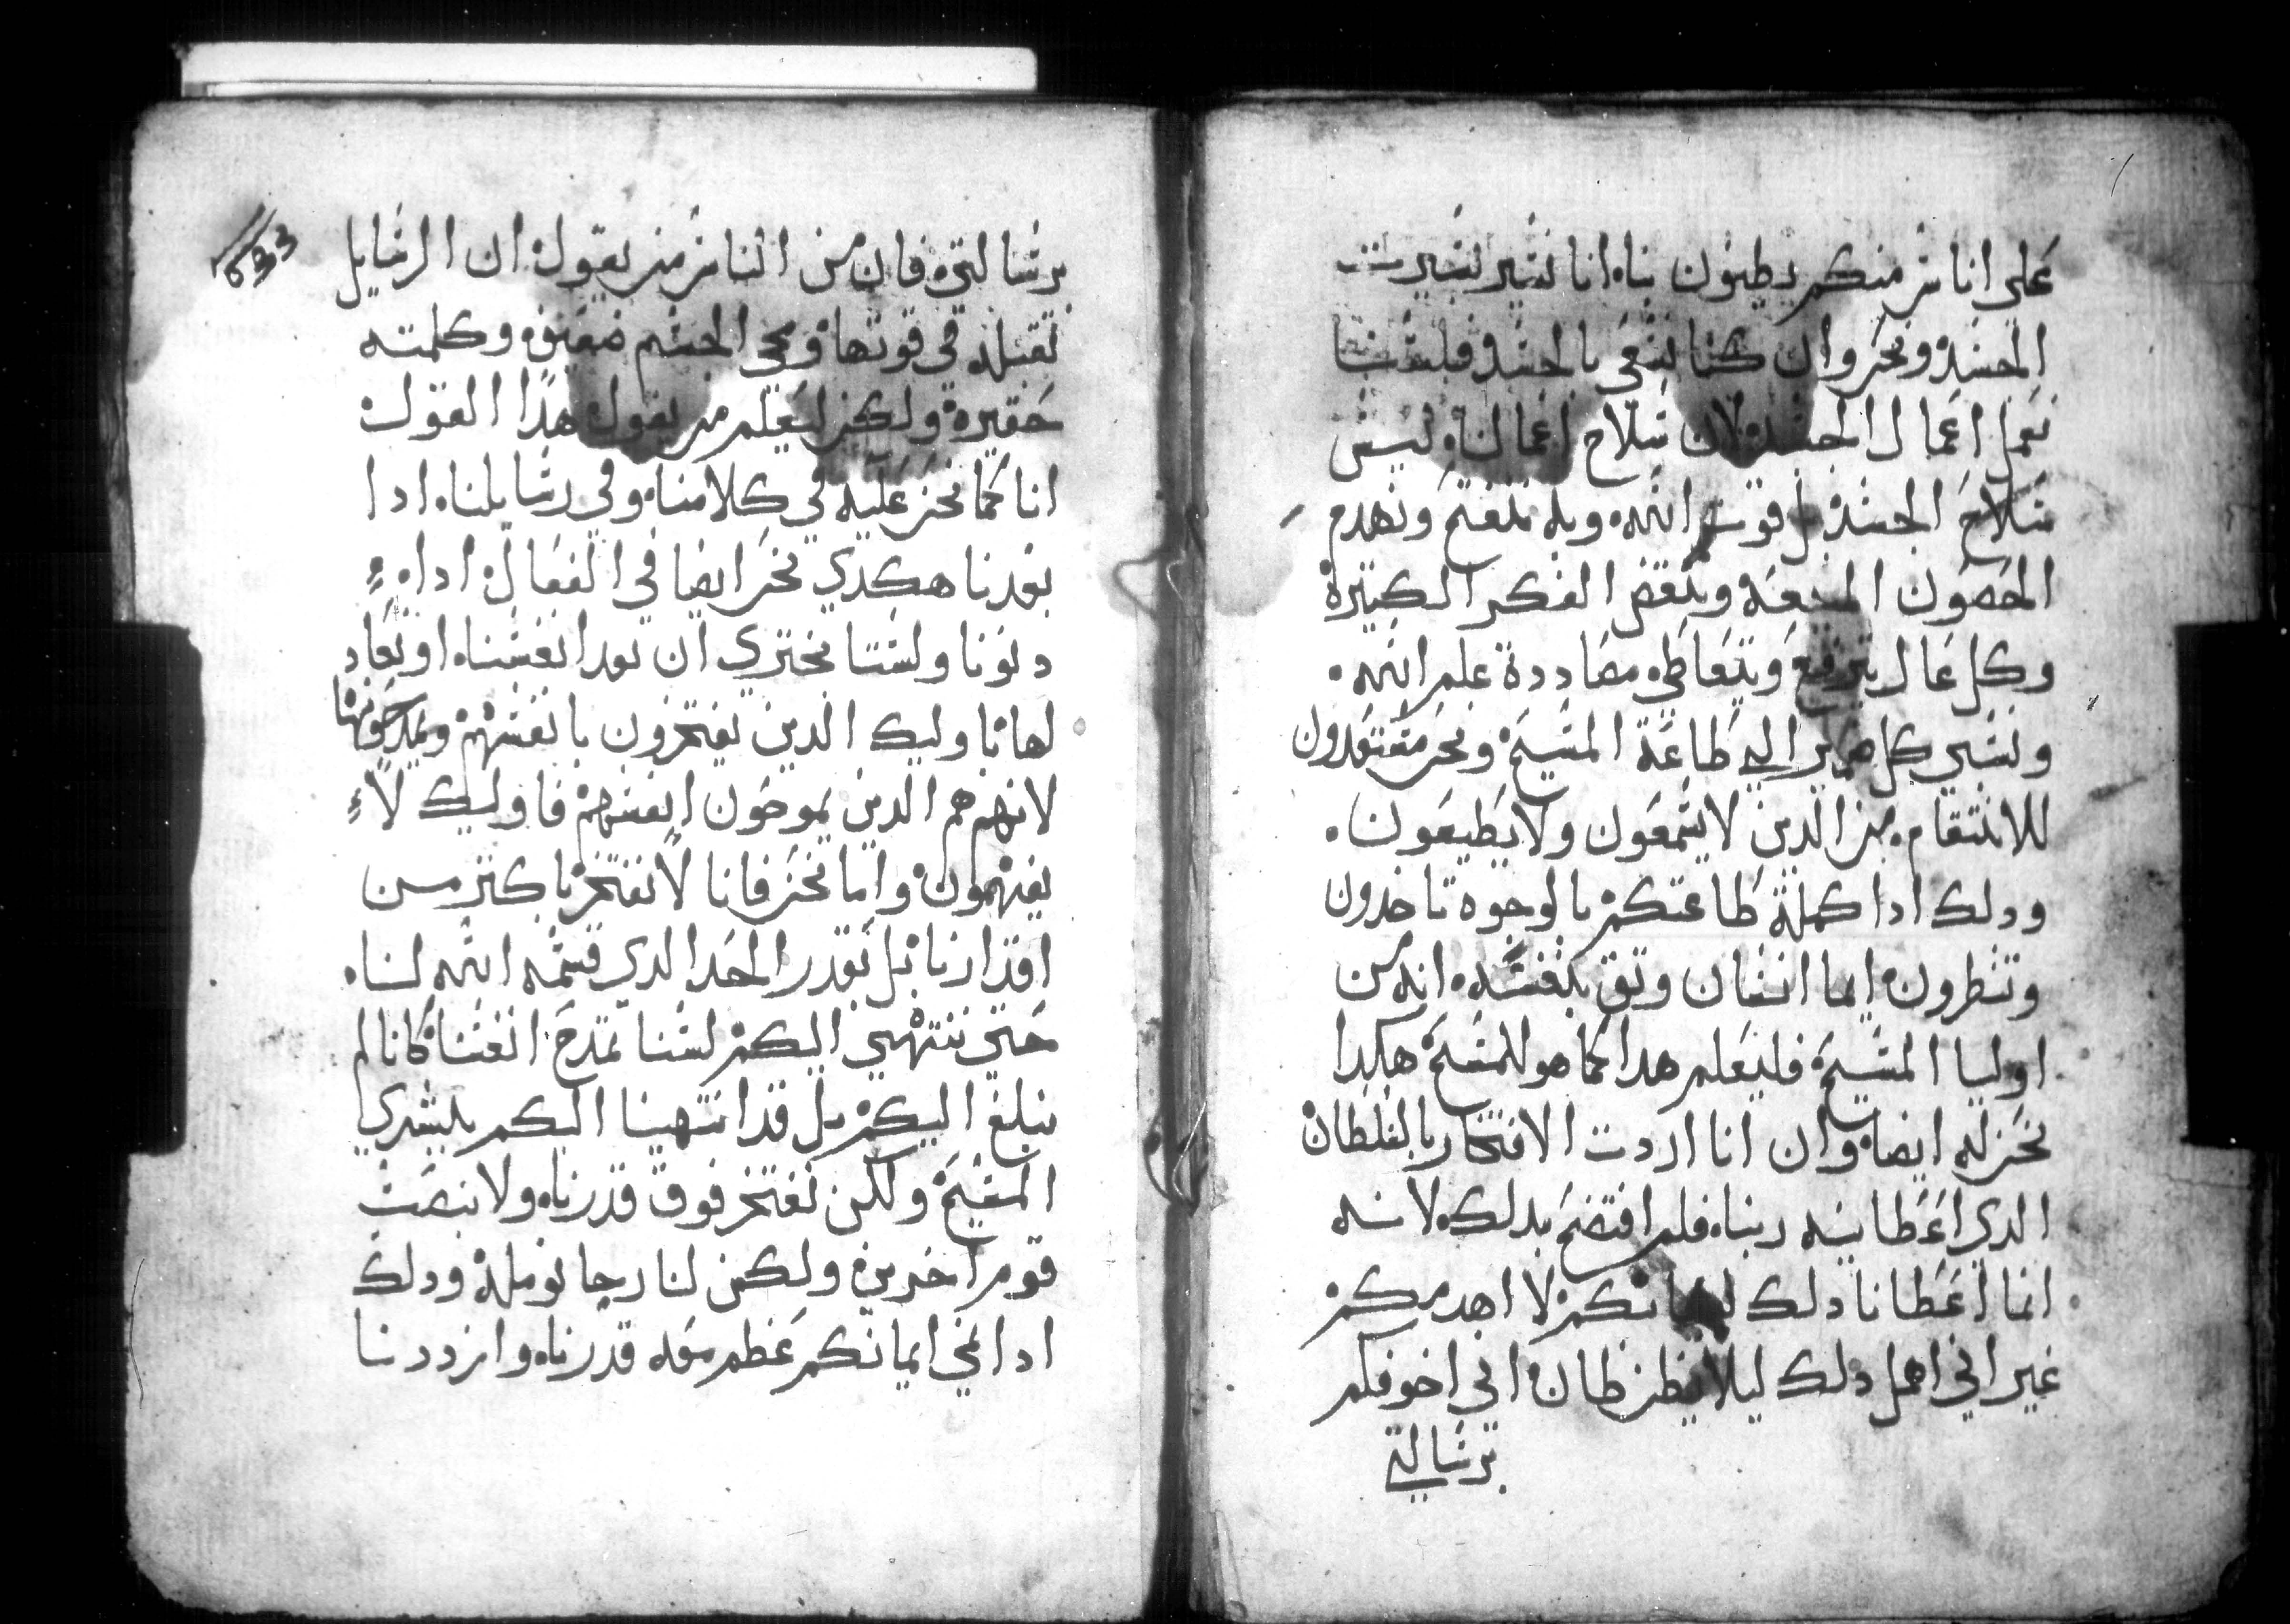 على اناس منكم يظنون بنا، انا نسير بسيرت
الجسد ونحن وان كنا نسعي بالجسد فلسنا
نعمل اعمال الجسد، لان سلاح اعمالنا، ليس
سلاح الجسد بل قوت الله، وبه نفتح ونهدم
الحصون المنيعه وننقض الفكر الكبيرة
وكل عال يترفع ويتعاطى، مضاددة علم الله.
ونسبي كل ضمير الي طاعة المسيح ونحن معتقدون
للانتقام، من الدين لا يسمعون ولا يطيعون.
ودلك ادا كملة طاعتكم بالوجوه تاخدون
وتنظرون، ايما انسان وثق بنفسه، انه من
اوليا المسيح فليعلم هدا كما هو للمسيح هكدا
نحن له ايضا، وان انا اردت الافتخار بالسلطان
الدي اعطانيه ربنا، فلم افتضح بدلك، لانه
انما اعطانا دلك لبنيانكم لا لهدمكم
غير اني اهمل دلك ليلا يظن ظان اني اخوفكم
برسالتي
برسالتي، فان من الناس من يقول ان الرسايل
ثقيله في قوتها، ومجي الجسم ضعيف، وكلمته
حقيرة، ولكن ليعلم من يقول هدا القول
انا كما نحن عليه في كلامنا، وفي رسايلنا، ادا
بعدنا هكدي نحن ايضا في الفعال ادا،
دنونا ولسنا نجتري ان نعد انفسنا، او نعادلها
باوليك الدين يفتخرون بانفسهم ويمدحونها
لانهم هم الدين يمدحون انفسهم فاوليك لا
يفهمون، واما نحن فانا لا نفتخر باكتر من
اقدارنا بل بقدر الحد الدي قسمه الله لنا.
حتى ننتهي اليكم لسنا نمدح انفسنا، كانا لم
نبلغ اليكم بل قد انتهينا اليكم ببشري
المسيح ولكن نفتخر فوق قدرنا، ولا بنصب
قوم اخرين ولكن لنا رجا نومله، ودلك
ادا نمي ايمانكم عظم معه قدرنا، وازددنا